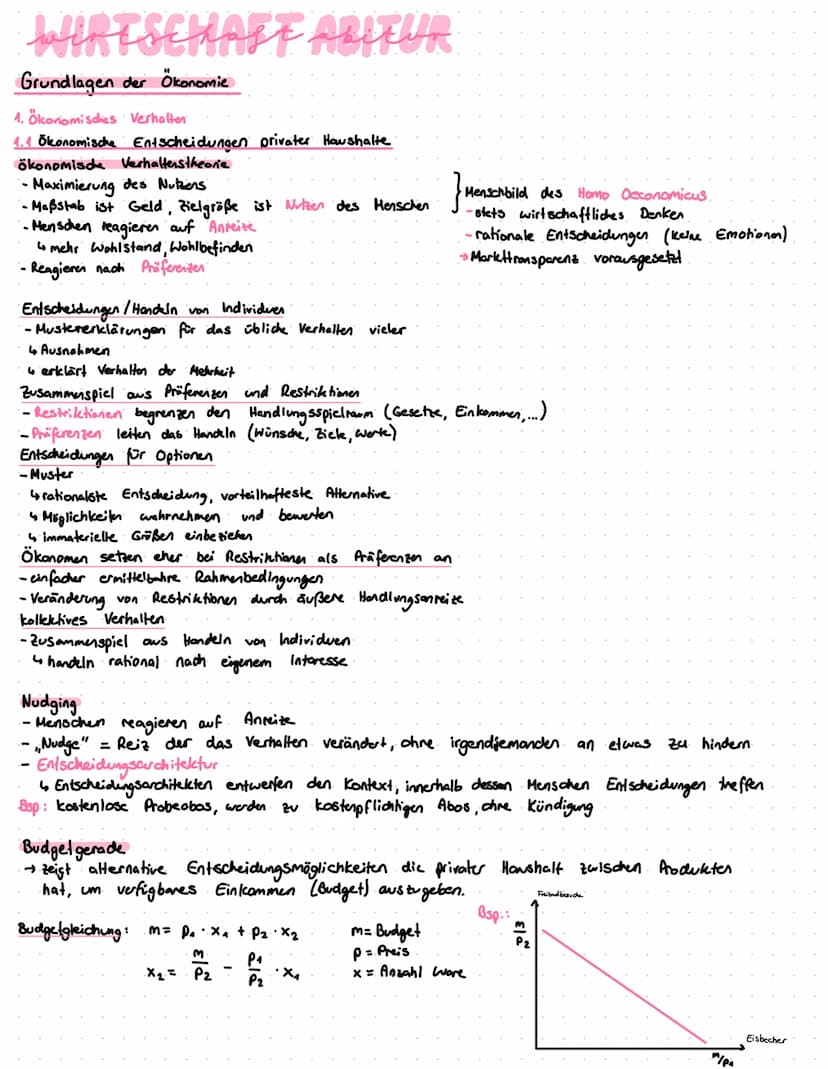 WIRTSCHAFT ABITUR
Grundlagen der Ökonomie
1. Ökonomisches Verhalten
1.1 Ökonomische Entscheidungen privater Haushalte
ökonomische Verhaltenstheorie
- Maximierung des Nutzens
- Maßstab ist Geld, Zielgröße ist Nutzen des Menschen
- Menschen reagieren auf Anreize
↳ mehr Wohlstand, Wohlbefinden
- Reagieren nach Präferenzen
Menschbild des Homo Oeconomicus
- stets wirtschaftliches Denken
- rationale Entscheidungen (keine Emotionen)
→ Markttransparenz vorausgesetzt
Entscheidungen / Handeln von Individuen
- Mustererklärungen für das übliche Verhalten vieler
↳ Ausnahmen
↳ erklärt Verhalten der Mehrheit
Zusammenspiel aus Präferenzen und Restriktionen
- Restriktionen begrenzen den Handlungsspielraum (Gesetze, Einkommen, ...)
- Präferenzen leiten das Handeln (Wünsche, Ziele, Werte)
Entscheidungen für Optionen
- Muster
↳ rationalste Entscheidung, vorteilhafteste Alternative
↳ Möglichkeiten wahrnehmen und bewerten
↳ immaterielle Größen einbeziehen
Ökonomen setzen eher bei Restriktionen als Präferenzen an
- einfacher ermittelbahre Rahmenbedingungen
- Veränderung von Restriktionen durch äußere Handlungsanreize
kollektives Verhalten
- Zusammenspiel aus Handeln von Individuen
↳ handeln rational nach eigenem Interesse
Nudging
- Menschen reagieren auf Anreize
- „Nudge" = Reiz der das Verhalten verändert, ohne irgendjemanden an etwas zu hindern
- Entscheidungsarchitektur
↳ Entscheidungsarchitekten entwerfen den Kontext, innerhalb dessen Menschen Entscheidungen treffen
Bsp: kostenlose Probeabos, werden zu kostenpflichtigen Abos, ohne Kündigung
Budgetgerade
→ zeigt alternative Entscheidungsmöglichkeiten die privater Haushalt zwischen Produkten
hat, um verfügbares Einkommen (Budget) auszugeben.
Budgetgleichung: m = p₁ · x₁ + p₂ · x₂
x₂ = m/p₂ - p₁/p₂ · x₁
m = Budget
p = Preis
x = Anzahl Ware
Bsp.:
Freibadbesuche
m/p₂
Eisbecher
m/p₁